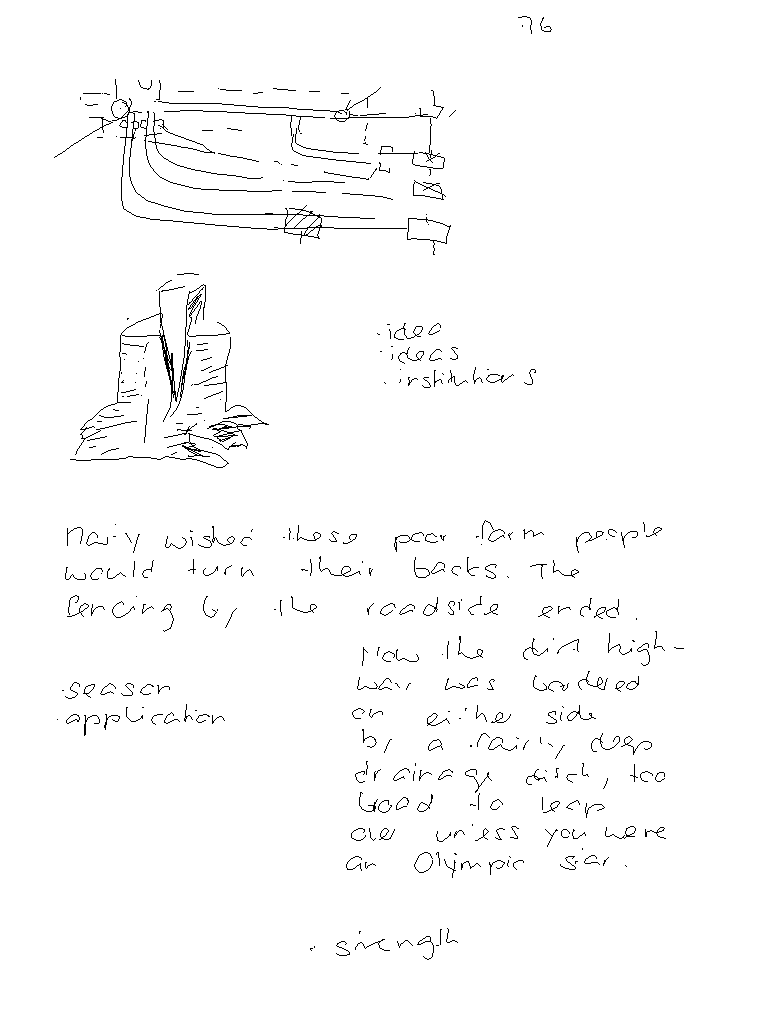 76
·idea
·ideas
·institutions
Mary wished these poor farm people
would turn their backs. The
fencing by the roadside ended.
Now the dirt high-
way was bordered
on either side
by a fairly deep
drainage ditch, too
broad to leap
over unless you were
an Olympic star.
·season
·application
·strength